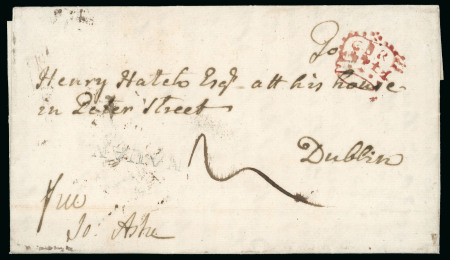 To
Henry Hatch Esqr att his house
in Peter Street
Dublin
Jo. Ashe